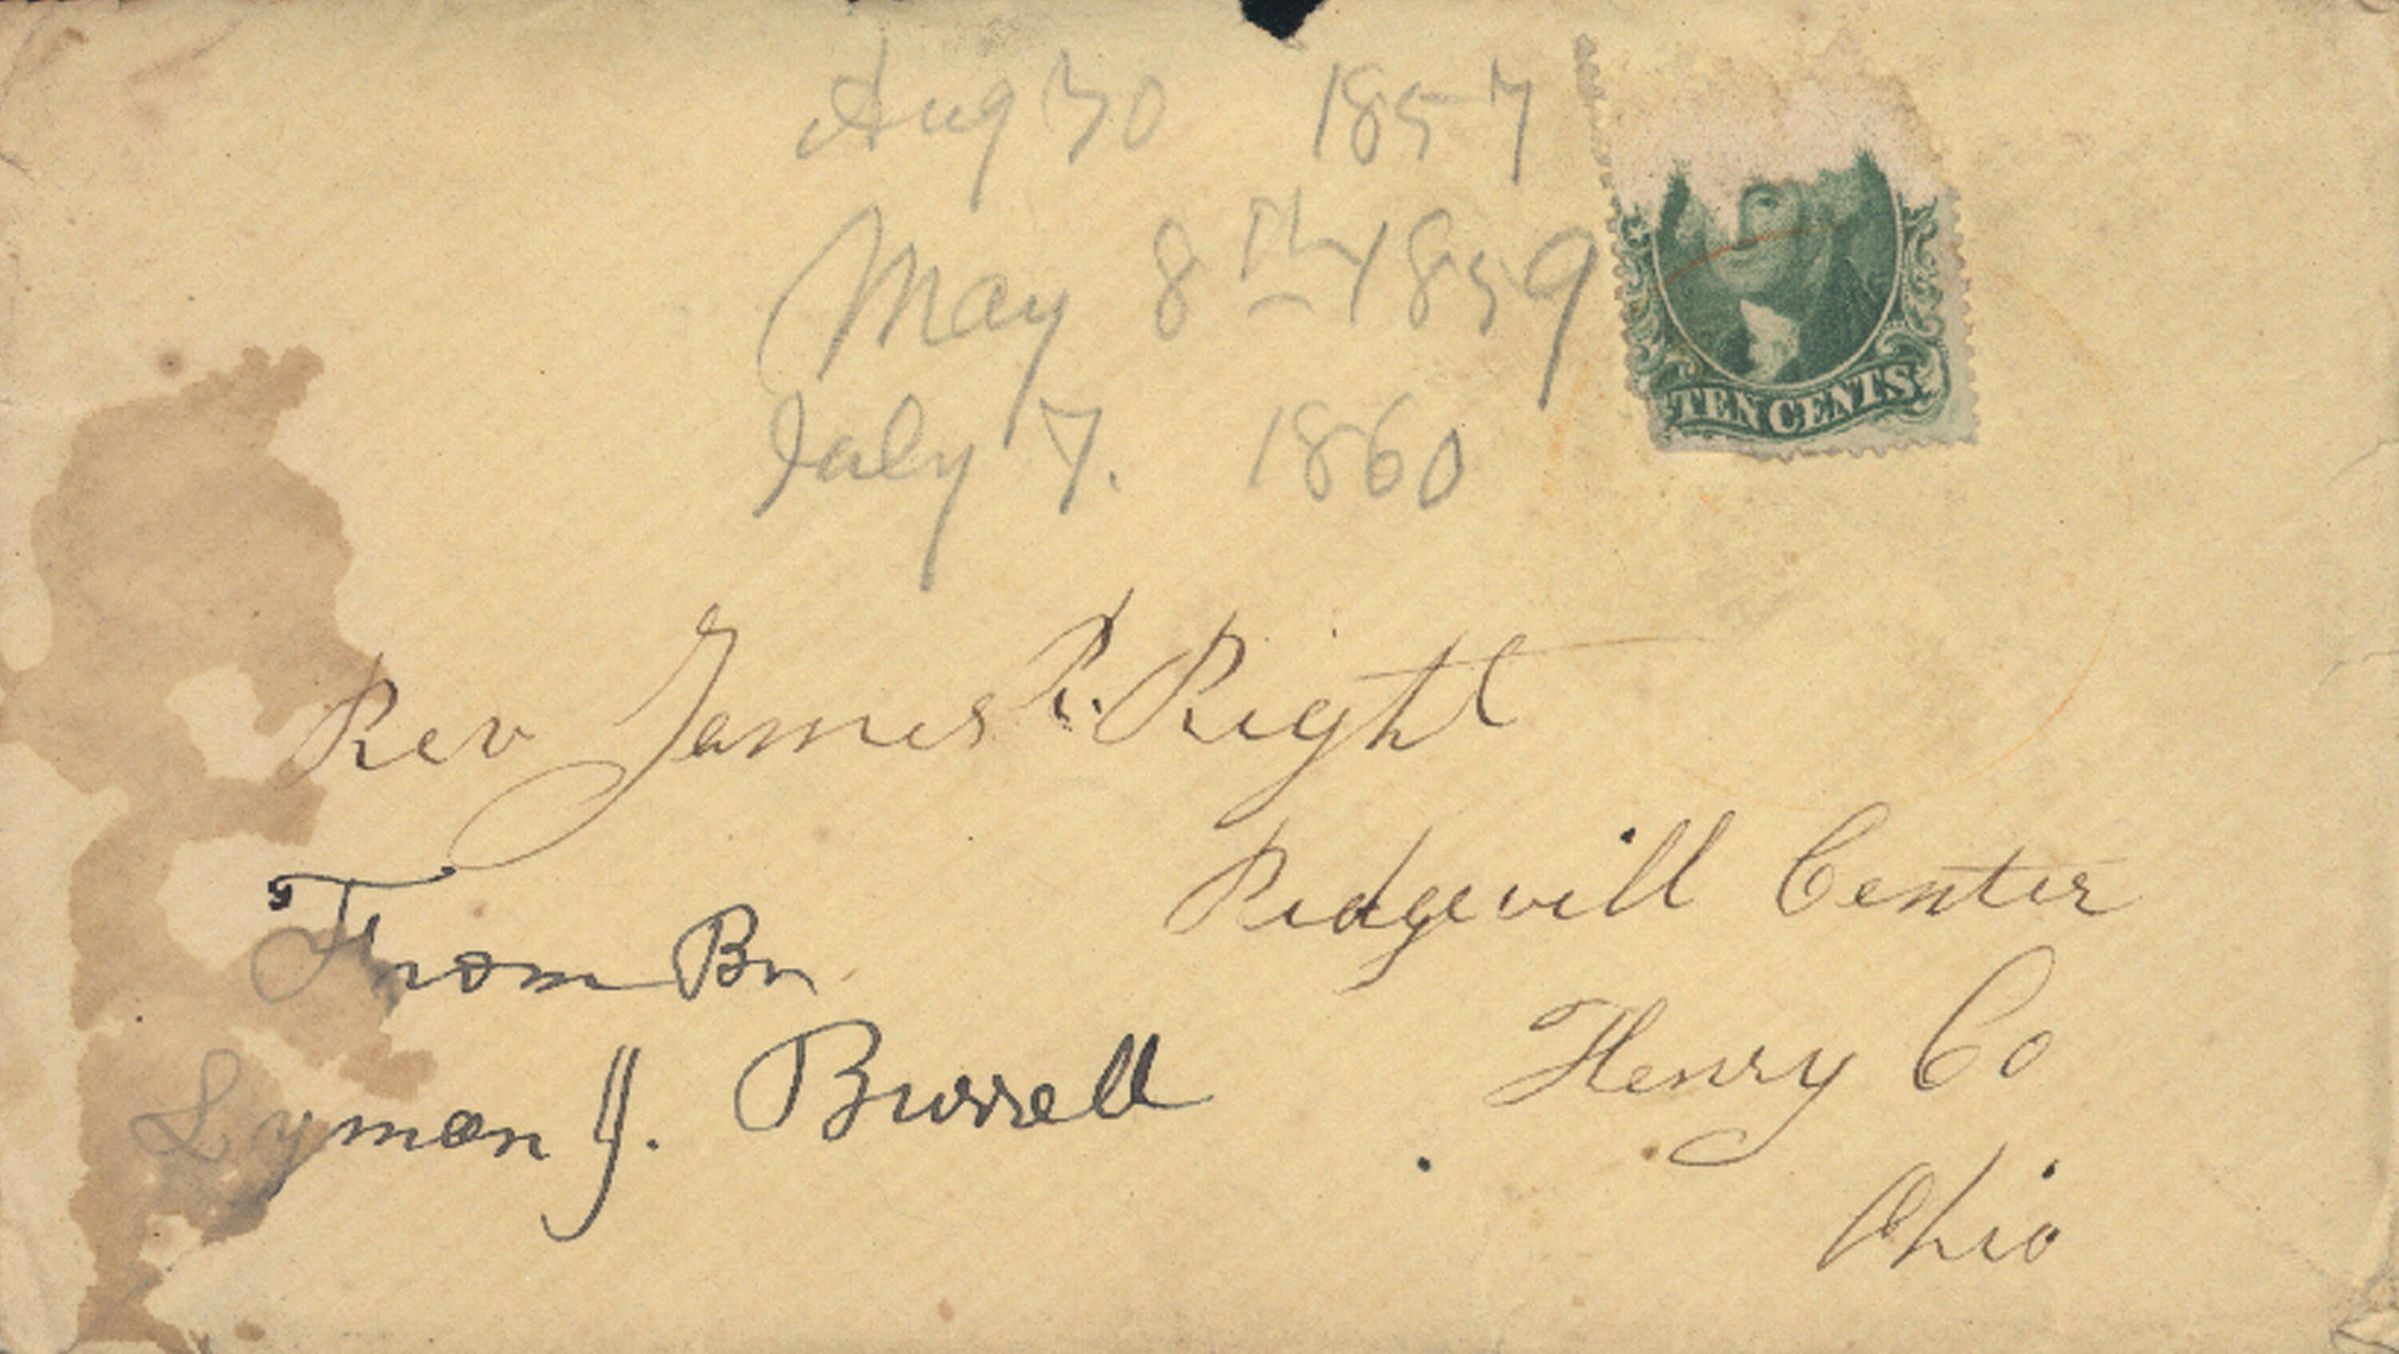 Aug 30 1857
May 8th 1859
July 7. 1860
TEN CENTS.
Rev James R. Right
Ridgevill Center
Henry Co
Ohio
From Br
Lyman J. Burrell